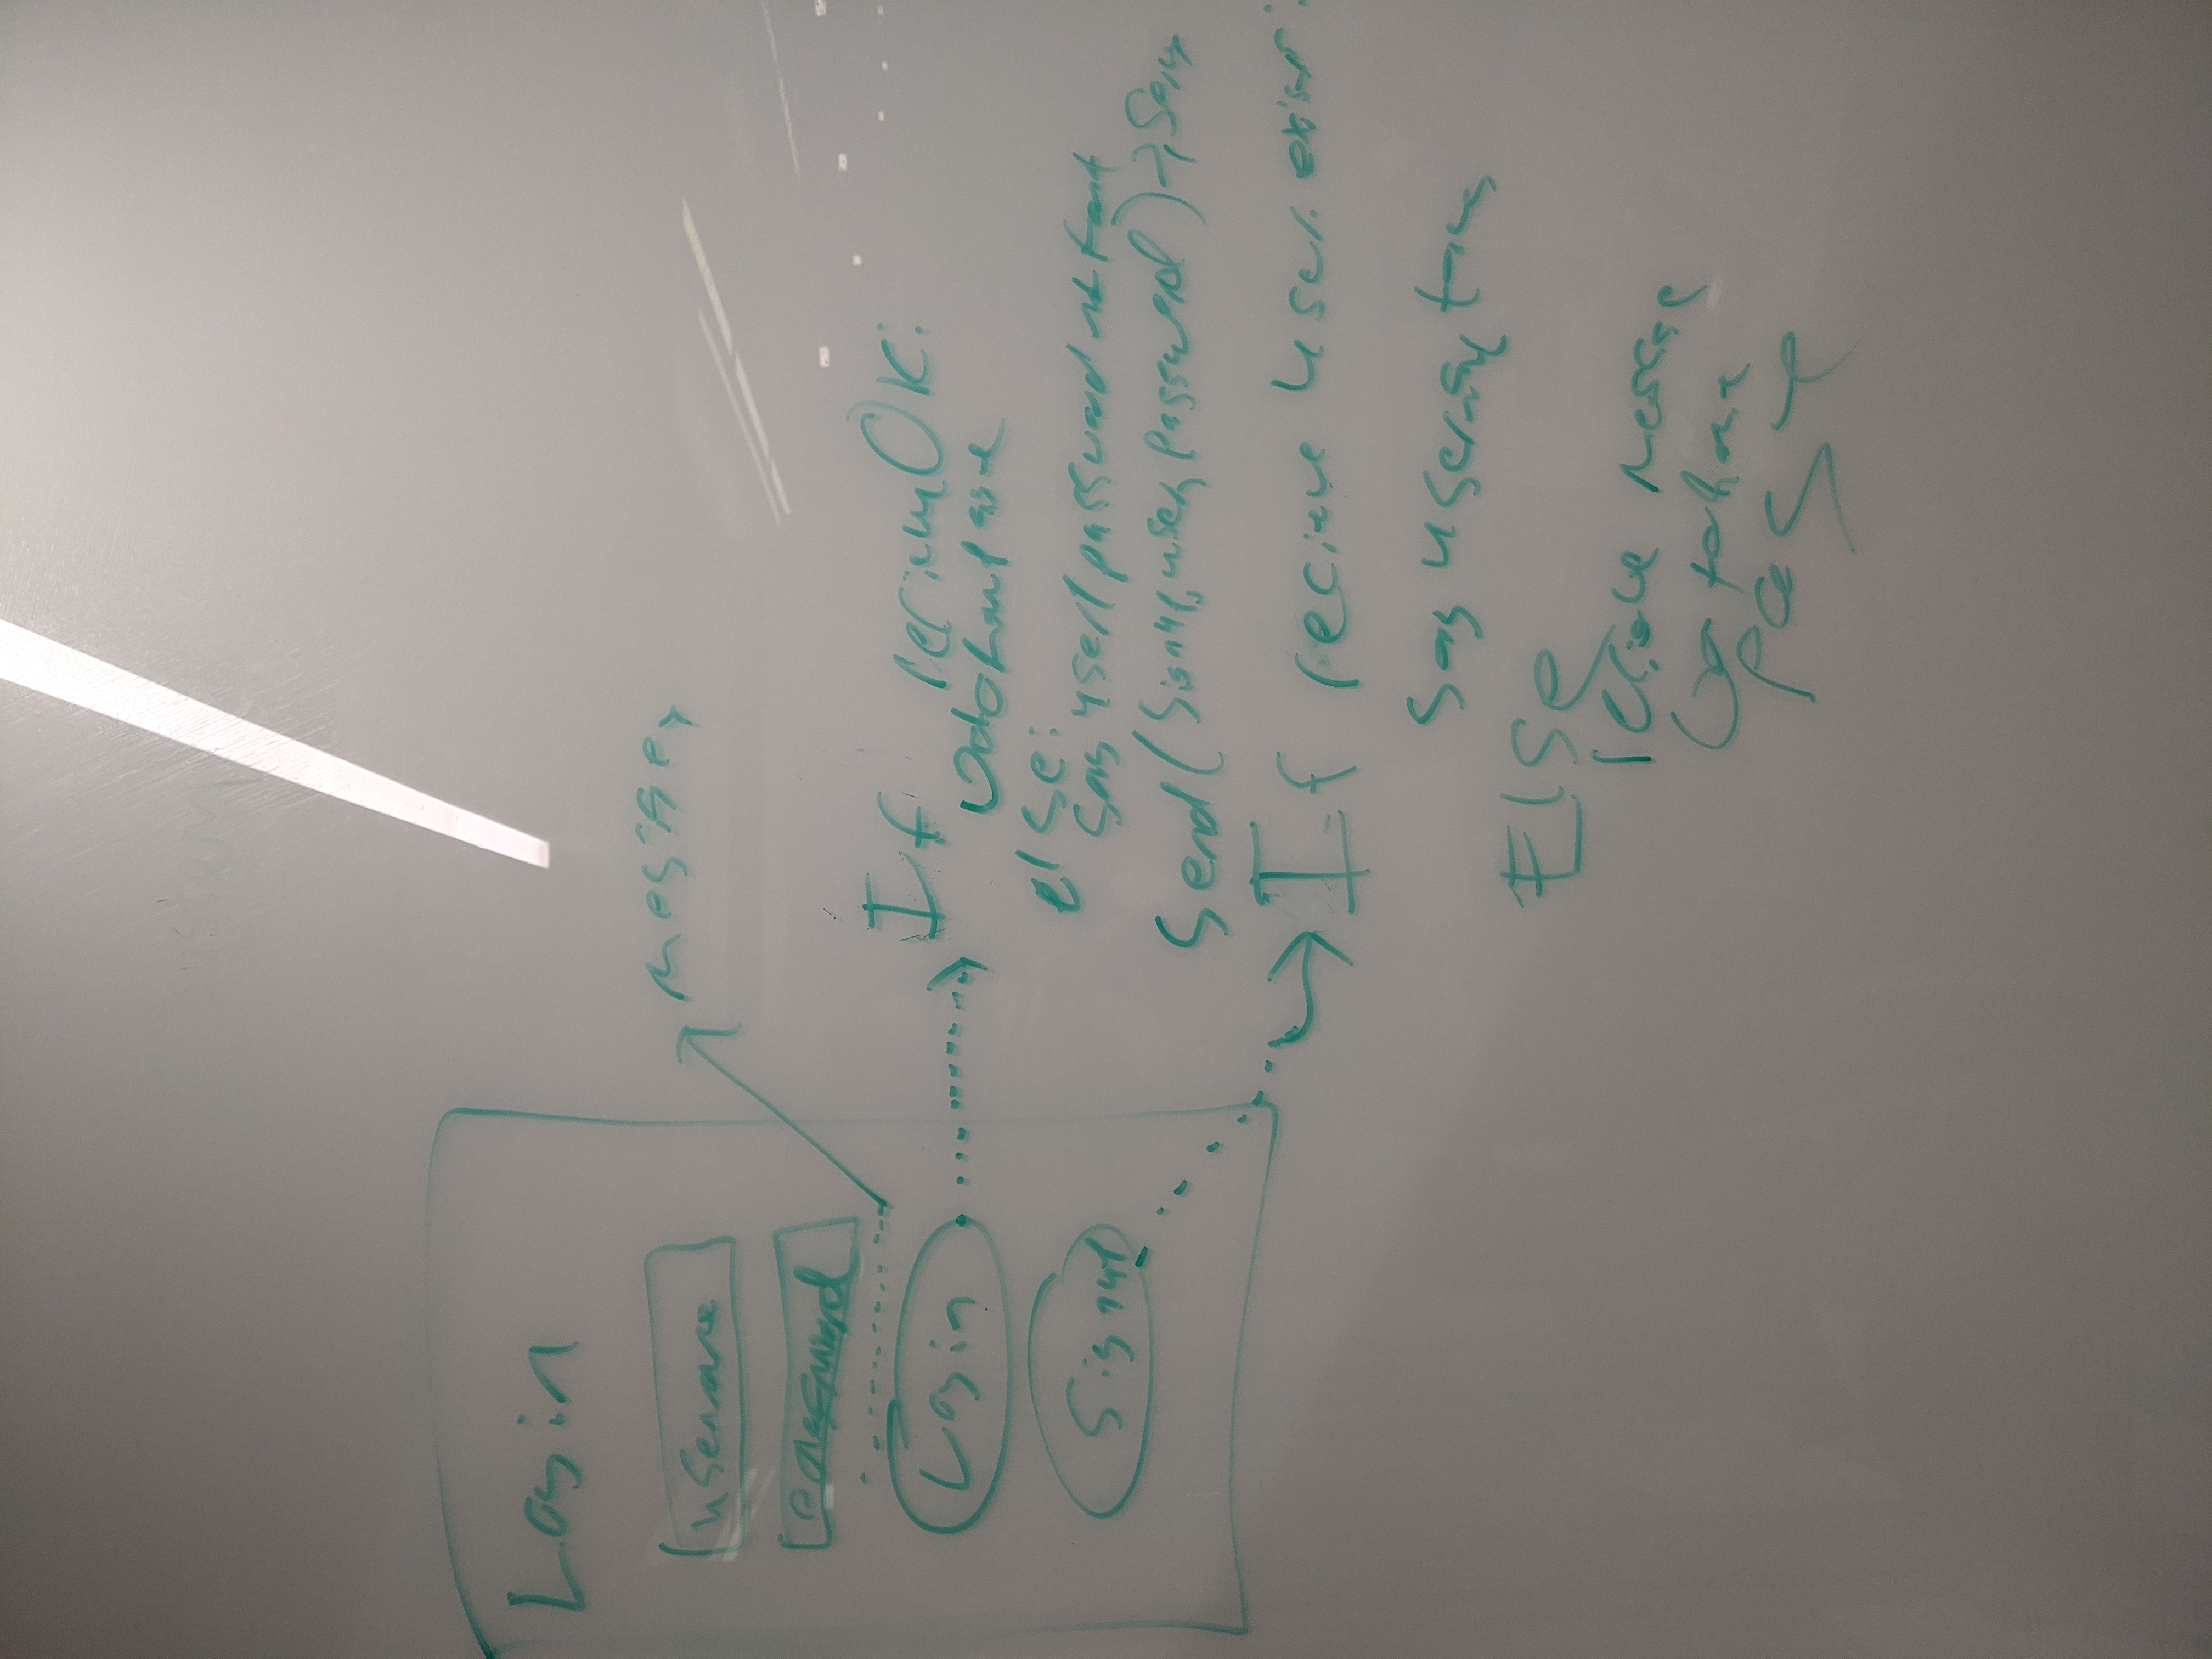 Login
username
password
Login
Signup
message
If recieve OK:
Go to home page
else:
Say user/password not found
Send(Signup, user, password) → Server
If recieve user exist:
Say username taken
Else
recieve message
Go to home
page